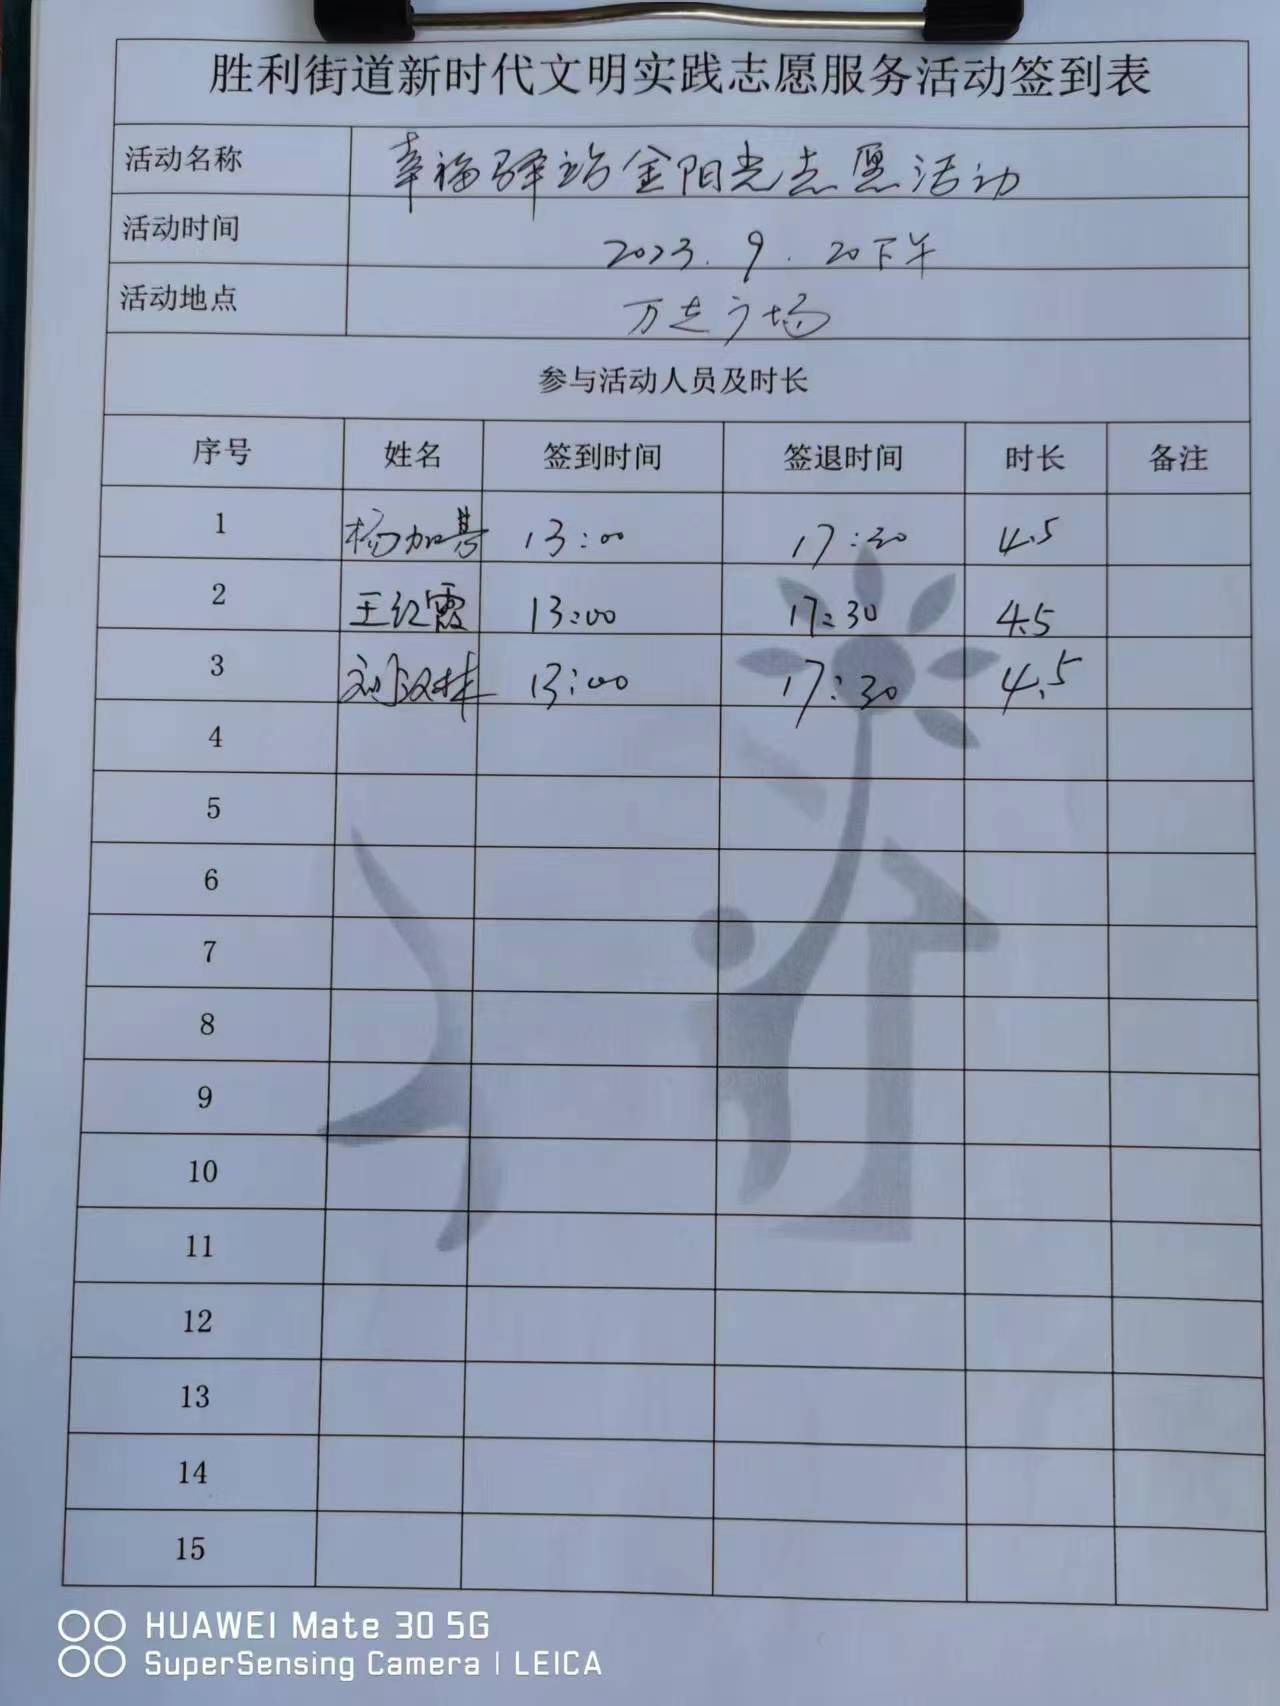 胜利街道新时代文明实践志愿服务活动签到表
活动名称 幸福驿站金阳光志愿活动
活动时间 2023.9.20下午
活动地点 万达广场
参与活动人员及时长
序号 姓名 签到时间 签退时间 时长 备注
1 杨加 13:00 17:30 4.5
2 王红霞 13:00 17:30 4.5
3 刘汉林 13:00 17:30 4.5
4
5
6
7
8
9
10
11
12
13
14
15
HUAWEI Mate 30 5G
SuperSensing Camera | LEICA